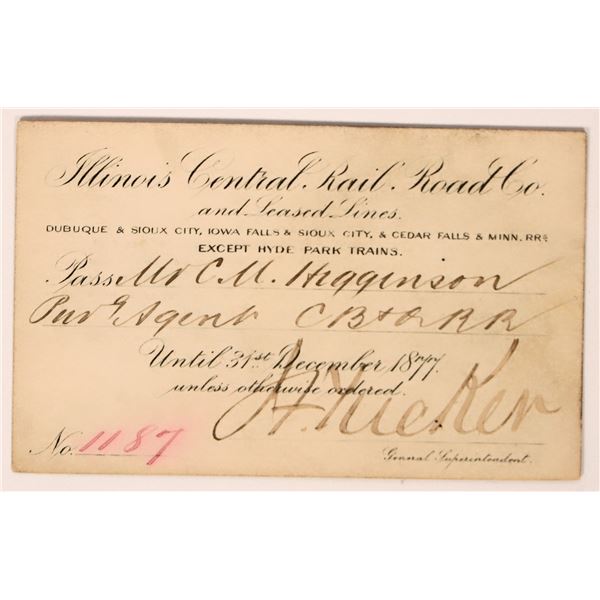 Illinois Central Rail Road Co.
and Leased Lines.
DUBUQUE & SIOUX CITY, IOWA FALLS & SIOUX CITY, & CEDAR FALLS & MINN. RRS
EXCEPT HYDE PARK TRAINS.
Pass Mr C. M. Higginson
Purg Agent C B & Q R R
Until 31st December 1877.
unless otherwise ordered.
J. F. Tucker
No. 1187
General Superintendent.